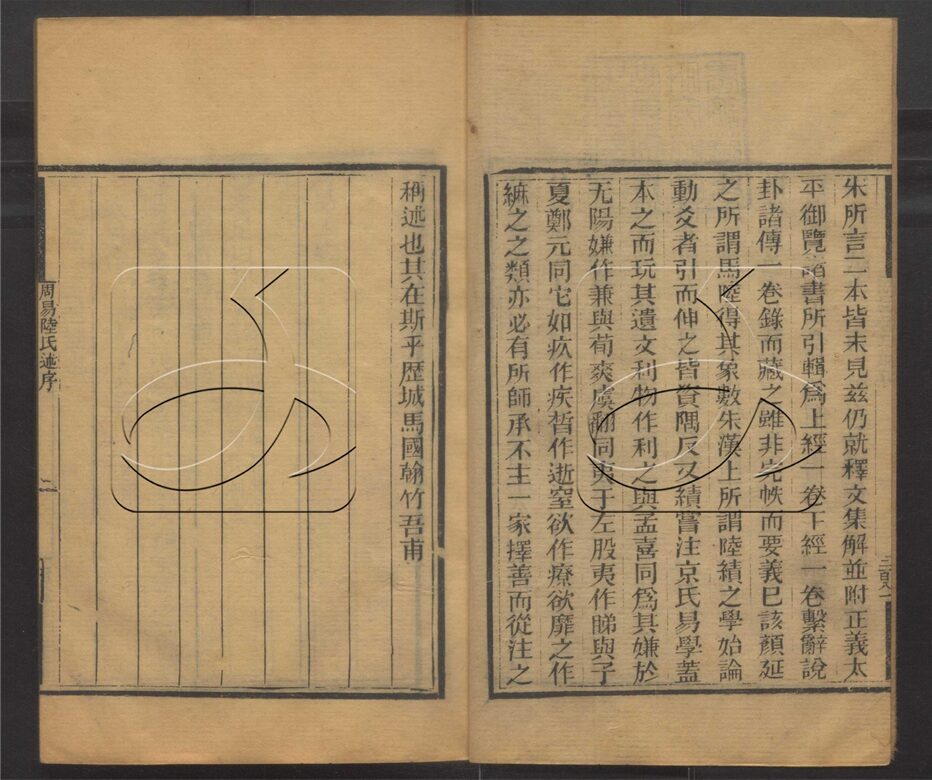 朱所言二本皆未見茲仍就釋文集解並附正義太
平御覽諸書所引輯爲上經一卷下經一卷繫辭說
卦諸傳一卷錄而藏之雖非完帙而要義巳該顏延
之所謂馬陸得其象數朱漢上所謂陸績之學始論
動爻者引而伸之皆資隅反又績嘗注京氏易學蓋
本之而玩其遺文利物作利之與孟喜同爲其嫌於
无陽嫌作兼與荀爽虞翻同夷于左股夷作睇與子
夏鄭元同它如疚作疾晢作逝窒欲作𢚓欲靡之作
縻之之類亦必有所師承不主一家擇善而從注之
稱述也其在斯乎歷城馬國翰竹吾甫
周易陸氏述序
二